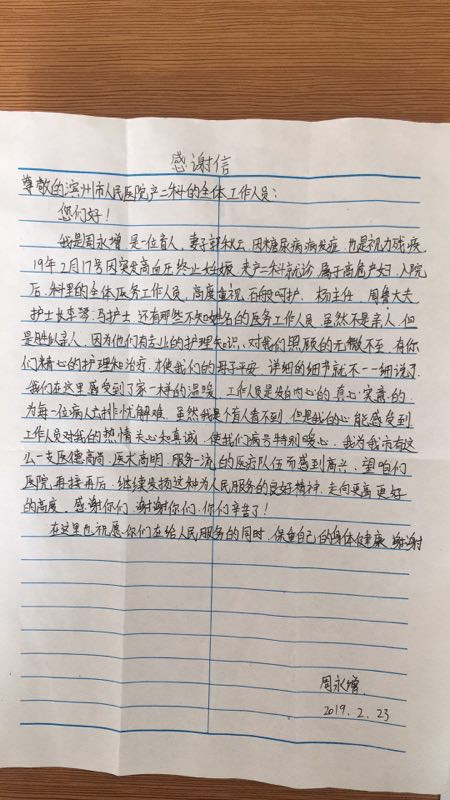 感谢信
尊敬的滨州市人民医院产二科的全体工作人员：
您们好！
我是周永增 是一位盲人，妻子郭秋云 因糖尿病病发症 也是视力残疾
19年2月17号因突发高血压终止妊娠 来产二科就诊 属于高危产妇 入院
后，科里的全体医务工作人员，高度重视，百般呵护，杨主任，周鲁大夫
护士长李 马护士 还有那些不知姓名的医务工作人员，虽然不是亲人，但
是胜似亲人，因为他们有专业的护理知识，对我们照顾的无微不至，有你
们精心的护理和治疗，才使我们的母子平安 详细的细节就不一一细说了
我们在这里感受到了家一样的温暖，工作人员是发自内心的，真心实意的，
为每一位病人排忧解难，虽然我是个盲人看不到，但是我的心能感受到
工作人员对我的热情 关心和真诚，使我们病号特别暖心，我为我市有这
么一支医德高尚，医术高明，服务一流的医疗队伍而感到高兴，望咱们
医院，再接再后，继续发扬这种为人民服务的良好精神，走向更高更好
的高度，感谢你们，谢谢你们，你们辛苦了！
在这里也祝愿你们在给人民服务的同时，保重自己的身体健康 谢谢
周永增
2019.2.23